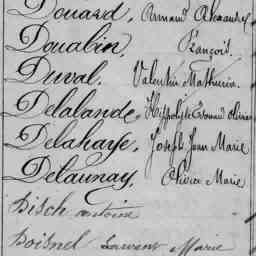 Douard, Armand Alexandre
Douabin, François.
Duval. Valentin Mathurin.
Delalande, Hippolyte Edouard Olivier
Delahaye, Joseph Jean Marie
Delaunay, Olivier Marie
Disch antoine
Doisnel Laurent Marie